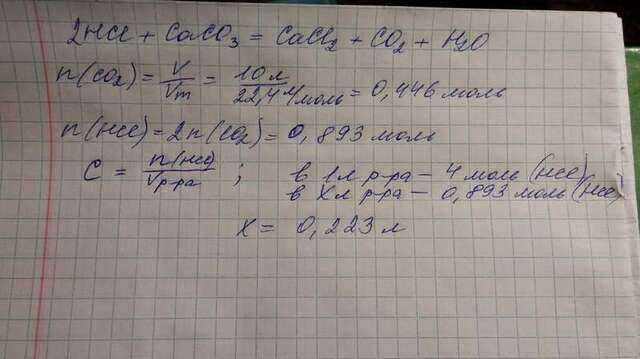 2HCl + CaCO₃ = CaCl₂ + CO₂ + H₂O
n(CO₂) = V/Vm = 10 л/22,4 л/моль = 0,446 моль
n(HCl) = 2n(CO₂) = 0,893 моль
C = n(HCl)/Vр-ра ; в 1л р-ра – 4 моль (HCl)
в Xл р-ра – 0,893 моль (HCl)
X = 0,223 л